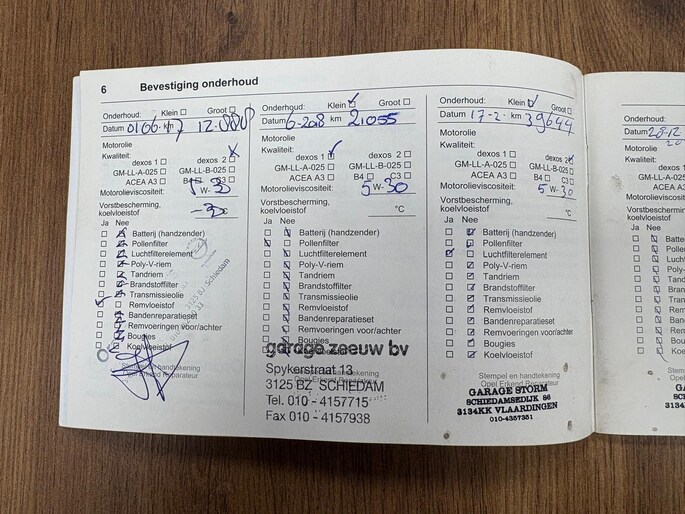 6 Bevestiging onderhoud
Onderhoud: Klein Groot
Datum 01 06 17 km 12.000
Motorolie
Kwaliteit:
dexos 1 dexos 2 X
GM-LL-A-025 GM-LL-B-025
ACEA A3 B4 C3
Motorolieviscositeit: W- 30
Vorstbescherming,
koelvloeistof °C
Ja Nee
Batterij (handzender)
Pollenfilter
Luchtfilterelement
Poly-V-riem
Tandriem
Brandstoffilter
Transmissieolie
Remvloeistof
Bandenreparatieset
Remvoeringen voor/achter
Bougies
Koelvloeistof
Stempel en handtekening
Opel Erkend Reparateur
Onderhoud: Klein Groot
Datum 6-2018 km 21055
Motorolie
Kwaliteit:
dexos 1 dexos 2
GM-LL-A-025 GM-LL-B-025
ACEA A3 B4 C3
Motorolieviscositeit: 5 W- 30
Vorstbescherming,
koelvloeistof °C
Ja Nee
Batterij (handzender)
Pollenfilter
Luchtfilterelement
Poly-V-riem
Tandriem
Brandstoffilter
Transmissieolie
Remvloeistof
Bandenreparatieset
Remvoeringen voor/achter
Bougies
garage zeeuw bv
Spykerstraat 13
3125 BZ SCHIEDAM
Tel. 010 - 4157715
Fax 010 - 4157938
Onderhoud: Klein Groot
Datum 17-2- km 39644
Motorolie
Kwaliteit:
dexos 1 dexos 2
GM-LL-A-025 GM-LL-B-025
ACEA A3 B4 C3
Motorolieviscositeit: 5 W- 30
Vorstbescherming,
koelvloeistof °C
Ja Nee
Batterij (handzender)
Pollenfilter
Luchtfilterelement
Poly-V-riem
Tandriem
Brandstoffilter
Transmissieolie
Remvloeistof
Bandenreparatieset
Remvoeringen voor/achter
Bougies
Koelvloeistof
Stempel en handtekening
Opel Erkend Reparateur
GARAGE STORM
SCHIEDAMSEDIJK 86
3134KK VLAARDINGEN
010-4357351
Onderhoud:
Datum 28-12
Motorolie
Kwaliteit:
GM-LL-
AC
Motorolievis
Vorstbesch
koelvloeistof
Ja Nee
Ba
Po
Lu
Po
Ta
Br
Tr
Re
Ba
Re
Bo
Ko